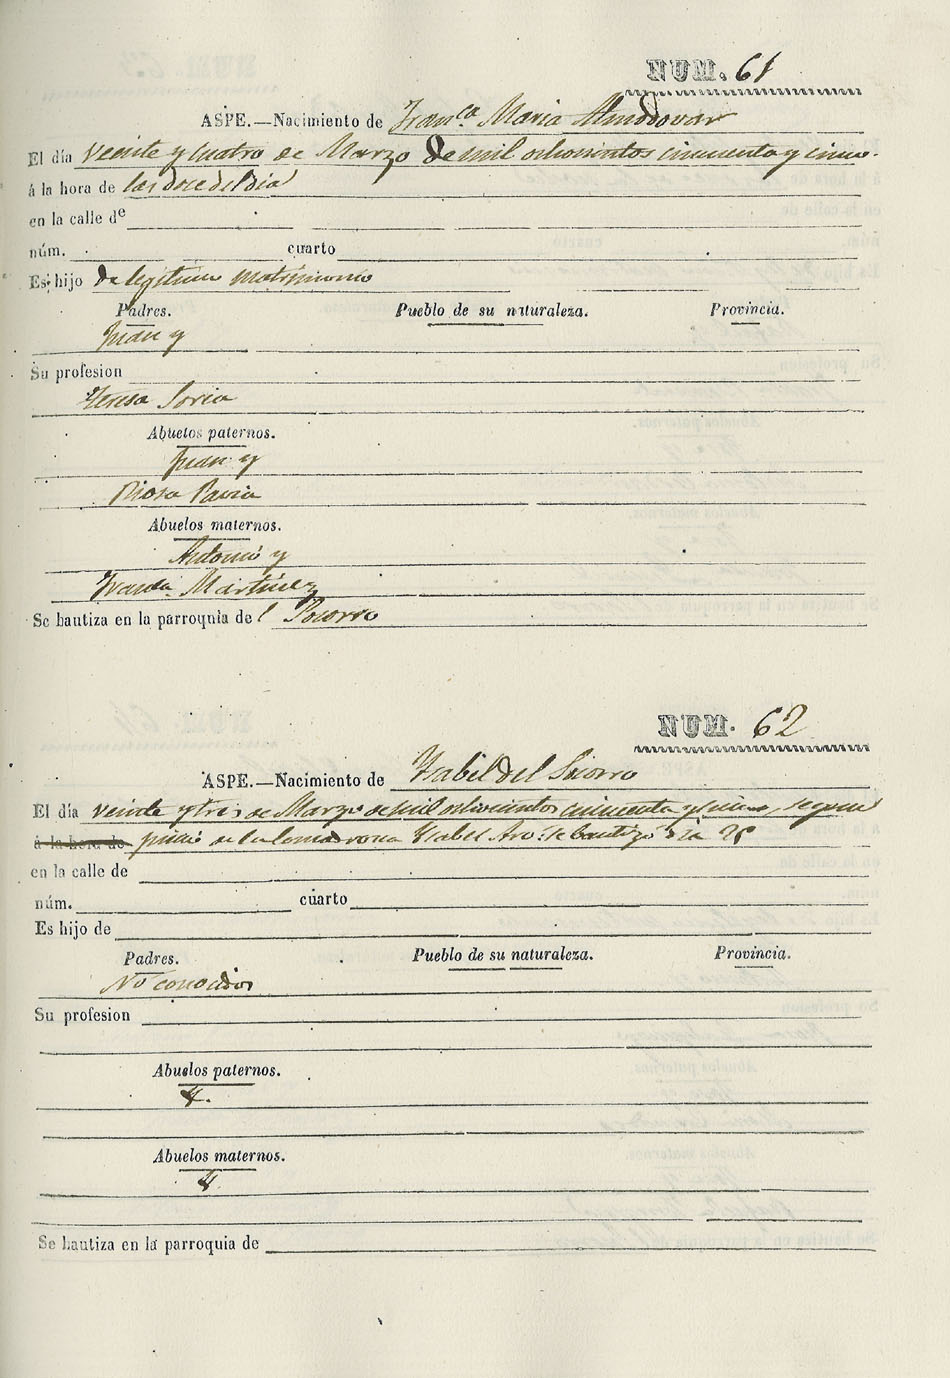 NUM. 61
ASPE.—Nacimiento de Fran.ca Maria Almodovar
El día veinte y cuatro de Marzo de mil ochocientos cincuenta y cinco.
á la hora de las doce del dia
en la calle de
núm. cuarto
Es hijo de legitimo matrimonio
Padres. Pueblo de su naturaleza. Provincia.
Juan y
Su profesion
Teresa Soria
Abuelos paternos.
Juan y
Rosa Pavia
Abuelos maternos.
Antonio y
Martinez
Se bautiza en la parroquia del Socorro
NUM. 62
ASPE.—Nacimiento de Ysabel del Socorro
El día veinte y tres de Marzo de mil ochocientos cincuenta y cinco, segun
á la hora de juicio de la Ysabel se bautizó dia 25
en la calle de
núm. cuarto
Es hijo de
Padres. Pueblo de su naturaleza. Provincia.
No conocidos
Su profesion
Abuelos paternos.
Abuelos maternos.
Se bautiza en la parroquia de